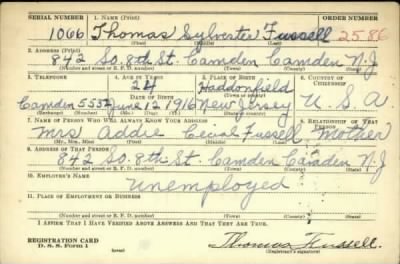 SERIAL NUMBER 1. NAME (Print) ORDER NUMBER
1066 Thomas Sylvester Fussell 2586
(First) (Middle) (Last)
2. ADDRESS (Print)
842 So. 8th St. Camden Camden N.J.
(Number and street or R. F. D. number) (Town) (County) (State)
3. TELEPHONE 4. AGE IN YEARS 5. PLACE OF BIRTH 6. COUNTRY OF CITIZENSHIP
24 Haddonfield
DATE OF BIRTH (Town or county)
Camden 5552 June 12 1916 New Jersey U.S.A.
(Exchange) (Number) (Mo.) (Day) (Yr.) (State or country)
7. NAME OF PERSON WHO WILL ALWAYS KNOW YOUR ADDRESS 8. RELATIONSHIP OF THAT PERSON
Mrs Addie Fussell Mother
(Mr., Mrs., Miss) (First) (Middle) (Last)
9. ADDRESS OF THAT PERSON
842 So. 8th St. Camden Camden N.J.
(Number and street or R. F. D. number) (Town) (County) (State)
10. EMPLOYER'S NAME
Unemployed
11. PLACE OF EMPLOYMENT OR BUSINESS
(Number and street or R. F. D. number) (Town) (County) (State)
I AFFIRM THAT I HAVE VERIFIED ABOVE ANSWERS AND THAT THEY ARE TRUE.
REGISTRATION CARD
D. S. S. Form 1 (over) Thomas Fussell
(Registrant's signature)